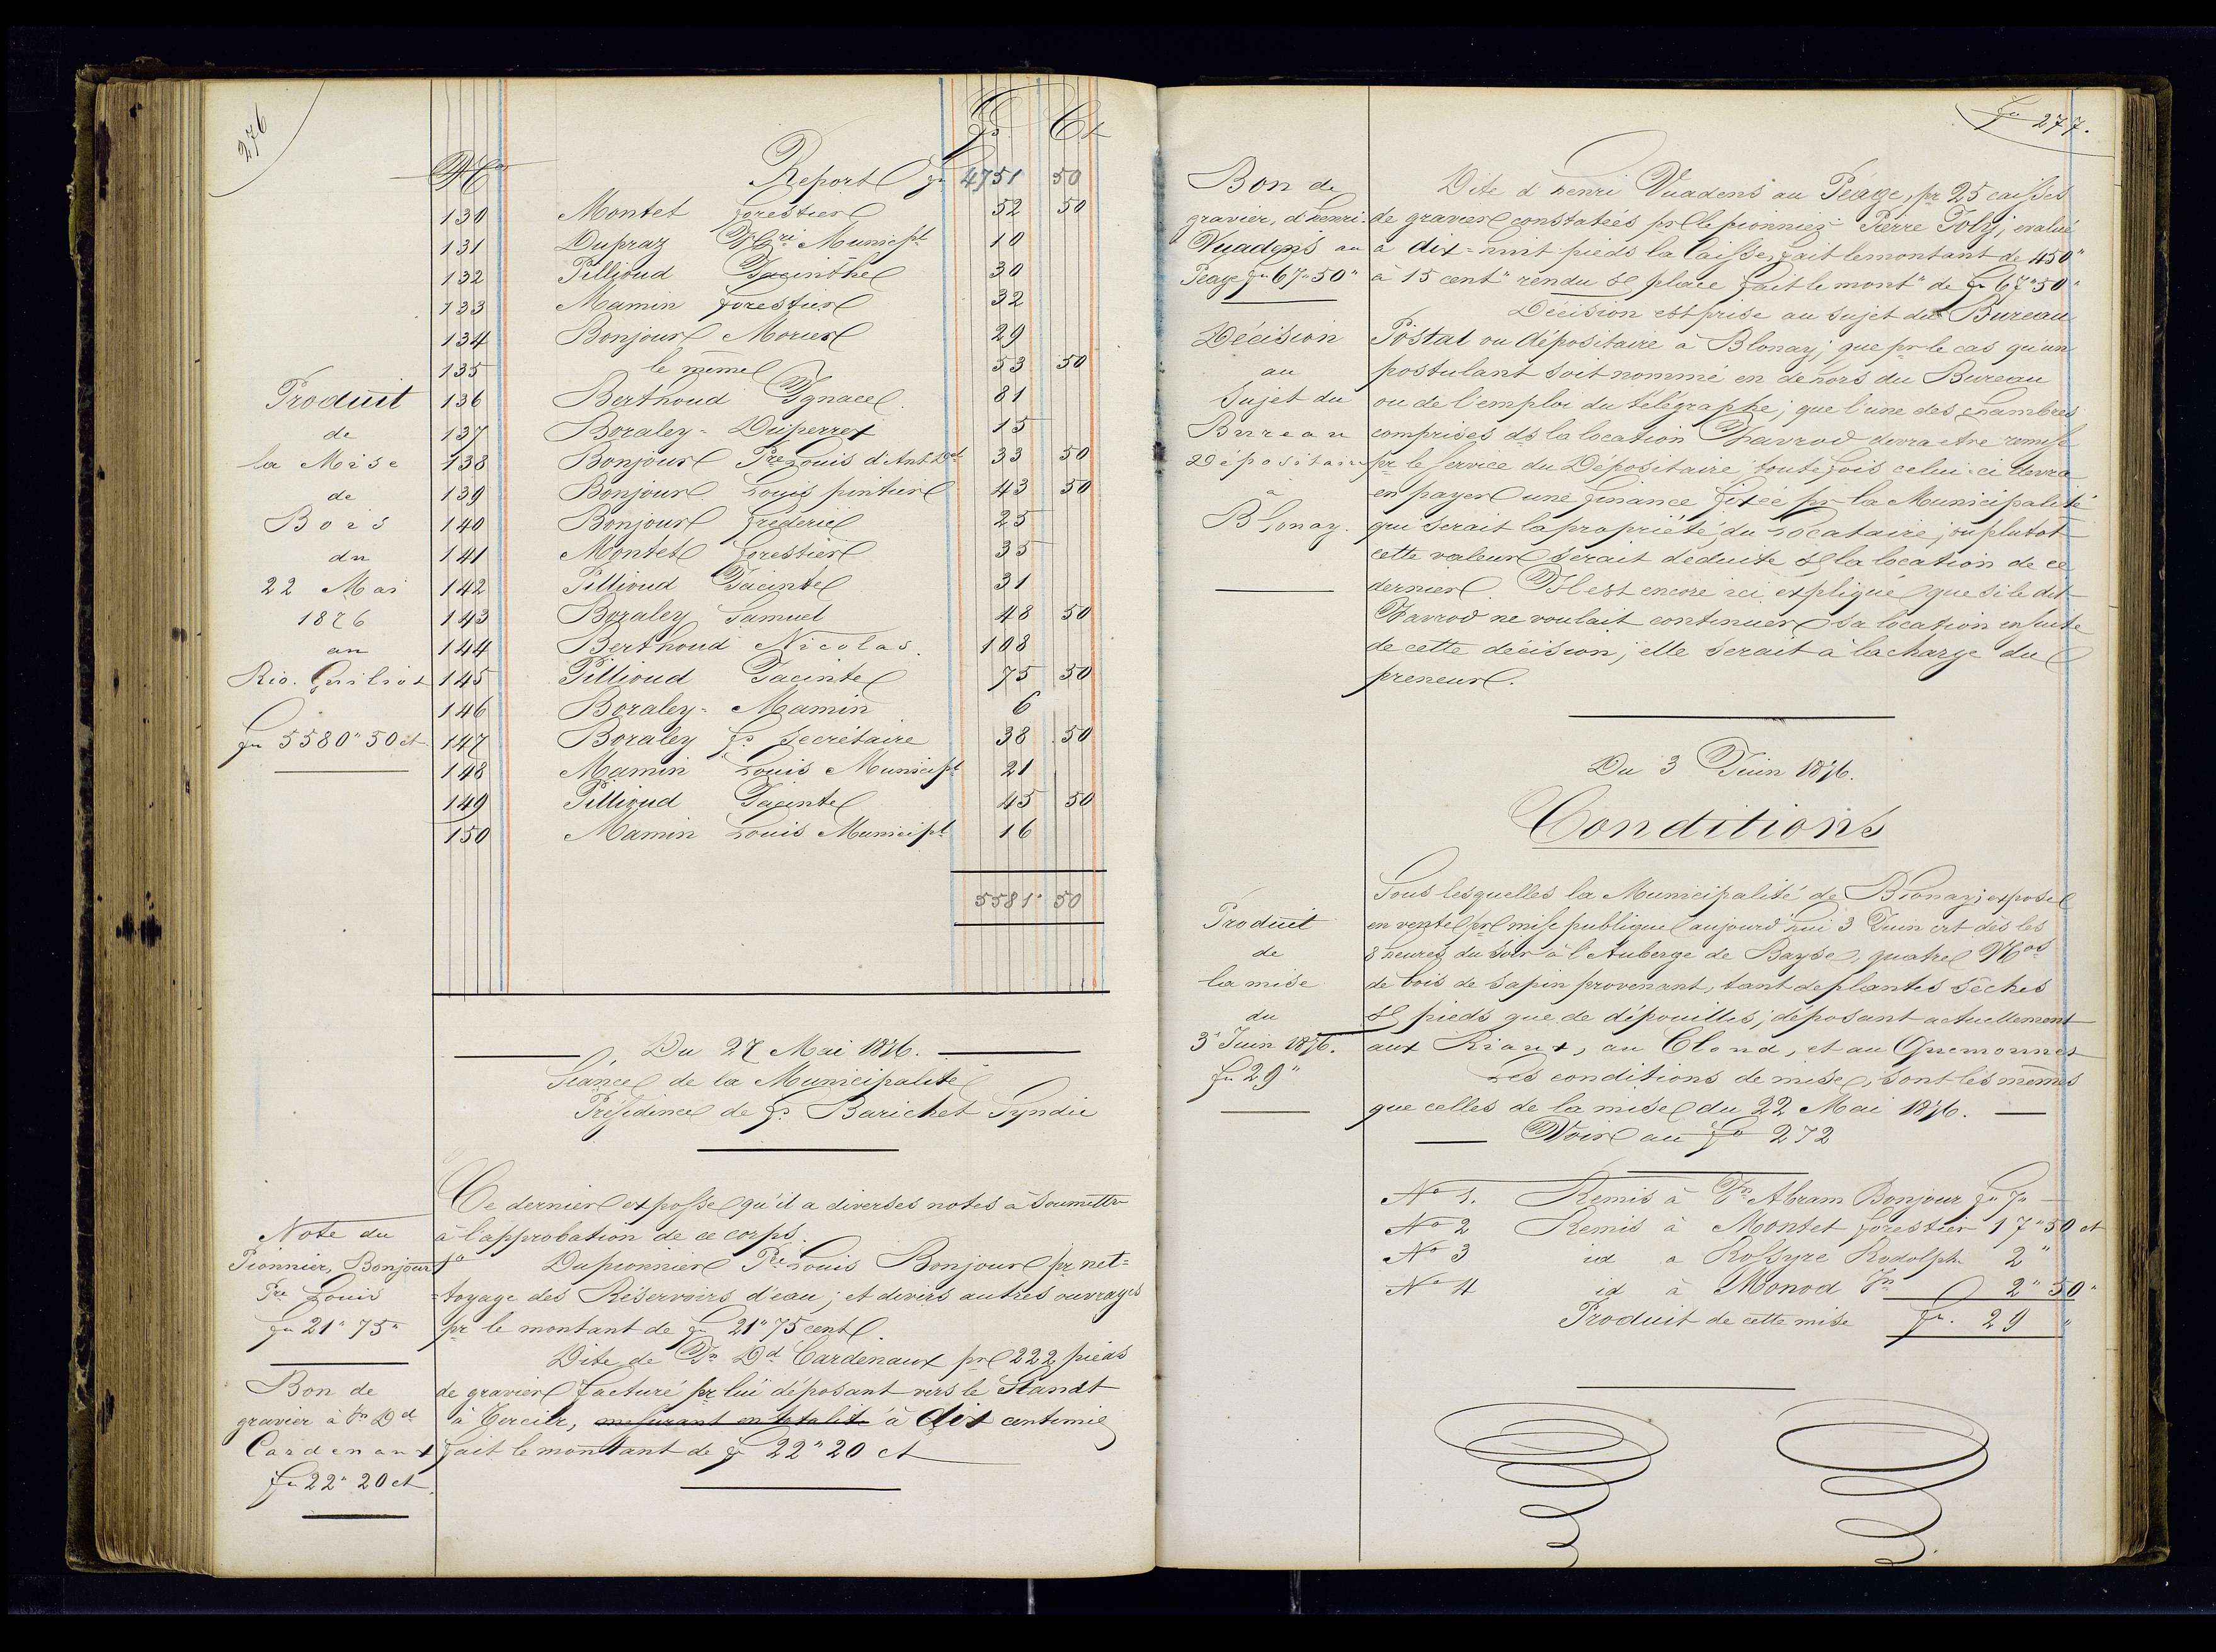 276
Fr. Ct
Nos Report fr 4751 50
130 Montet forestier 52 50
131 Dupraz Hri Municipl 10
132 Pillioud Jacinthe 30
133 Mamin forestier 32
134 Bonjour Morier 29
135 le même 53 50
136 Berthoud Ignace 81
137 Boraley-Duperrex 15
138 Bonjour Pre Louis d'Ant. Dd 33 50
139 Bonjour Louis pinture 43 50
140 Bonjour fréderic 25
141 Montet forestier 35
142 Pillioud Jacinte 31
143 Boraley Samuel 48 50
144 Berthoud Nicolas. 108
145 Pillioud Jacinte 75 50
146 Boraley-Mamin 6
147 Boraley fs Secrétaire 38 50
148 Mamin Louis Municipl 21
149 Pillioud Jacinte 45 50
150 Mamin Louis Municipl 16
5581. 50
Produit
de
la Mise
de
Bois
du
22 Mai
1876
au
Rio.
fr 5580" 50 ct
Du 27 Mai 1876.
Séance de la Municipalité
Présidence de fs Barichet Syndic
Ce dernier expose qu'il a diverses notes à soumettre
à l'approbation de ce corps.
1o Du pionnier Pre Louis Bonjour pr net=
=toyage des Réservoirs d'eau; et divers autres ouvrages
pr le montant de fr 21"75 cent.
Dite de Jn Dd Cardenaux pr 222 pieds
de gravier facturé pr lui déposant vers le Standt
à Tercier, mesurant en totalité à dix centimes
fait le montant de fr 22"20 ct
Note du
Pionnier, Bonjour
Pre Louis
fr 21" 75"
Bon de
gravier à Jn Dd
Cardenaux
fr 22" 20 ct.
fo 277.
Bon de
gravier, d'henri
Vuadens au
Péage fr 67"50"
Dite d'henri Vuadens au Péage, pr 25 caisses
de gravier constatées pr le pionnier Pierre Joly, evalué
à dix=huit pieds la Caisse, fait le montant de 450"
à 15 cent" rendu sr place fait le mont" de fr 67"50"
Décision
au
Sujet du
Bureau
Dépositaire
à
Blonay.
Décision est prise au sujet du Bureau
Postal ou dépositaire à Blonay; que pr le cas qu'un
postulant soit nommé en dehors du Bureau
ou de l'emploi du télégraphe; que l'une des chambres
comprises ds la location Favrod devra etre remise
pr le service du Dépositaire; toutefois celui-ci devra
en payer une finance fixée pr la Municipalité
qui serait la propriété du Locataire; ou plutot
cette valeur serait déduite sr la location de ce
dernier. Il est encore ici expliqué que si le dit
Favrod ne voulait continuer sa location ensuite
de cette décision; elle serait à la charge du
preneur.
Du 3 Juin 1876.
Conditions
Produit
de
la mise
du
3 Juin 1876.
fr 29"
Sous lesquelles la Municipalité de Blonay; expose
en vente pr mise publique aujourd'hui 3 Juin crt dès les
8 heures du soir à l'Auberge de Bayse, quatre Nos
de bois de sapin provenant, tant de plantes sèches
sr pieds que de dépouilles; déposant actuellement
aux Riaux, au Clond, et au Guemonnet
Les conditions de mise, sont les mêmes
que celles de la mise du 22 Mai 1876.
Voir au fo 272
No 1. Remis à Jn Abram Bonjour fr 7"
No 2 Remis à Montet forestier 17"50 ct
No 3 id a Rossyre Rodolph 2"
No 4 id à Monod Jn 2"50"
Produit de cette mise fr. 29 "